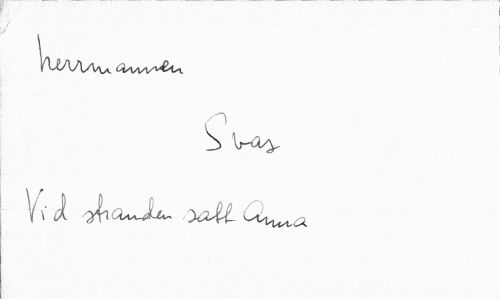 herrmannen
Svas
Vid stranden satt Anna